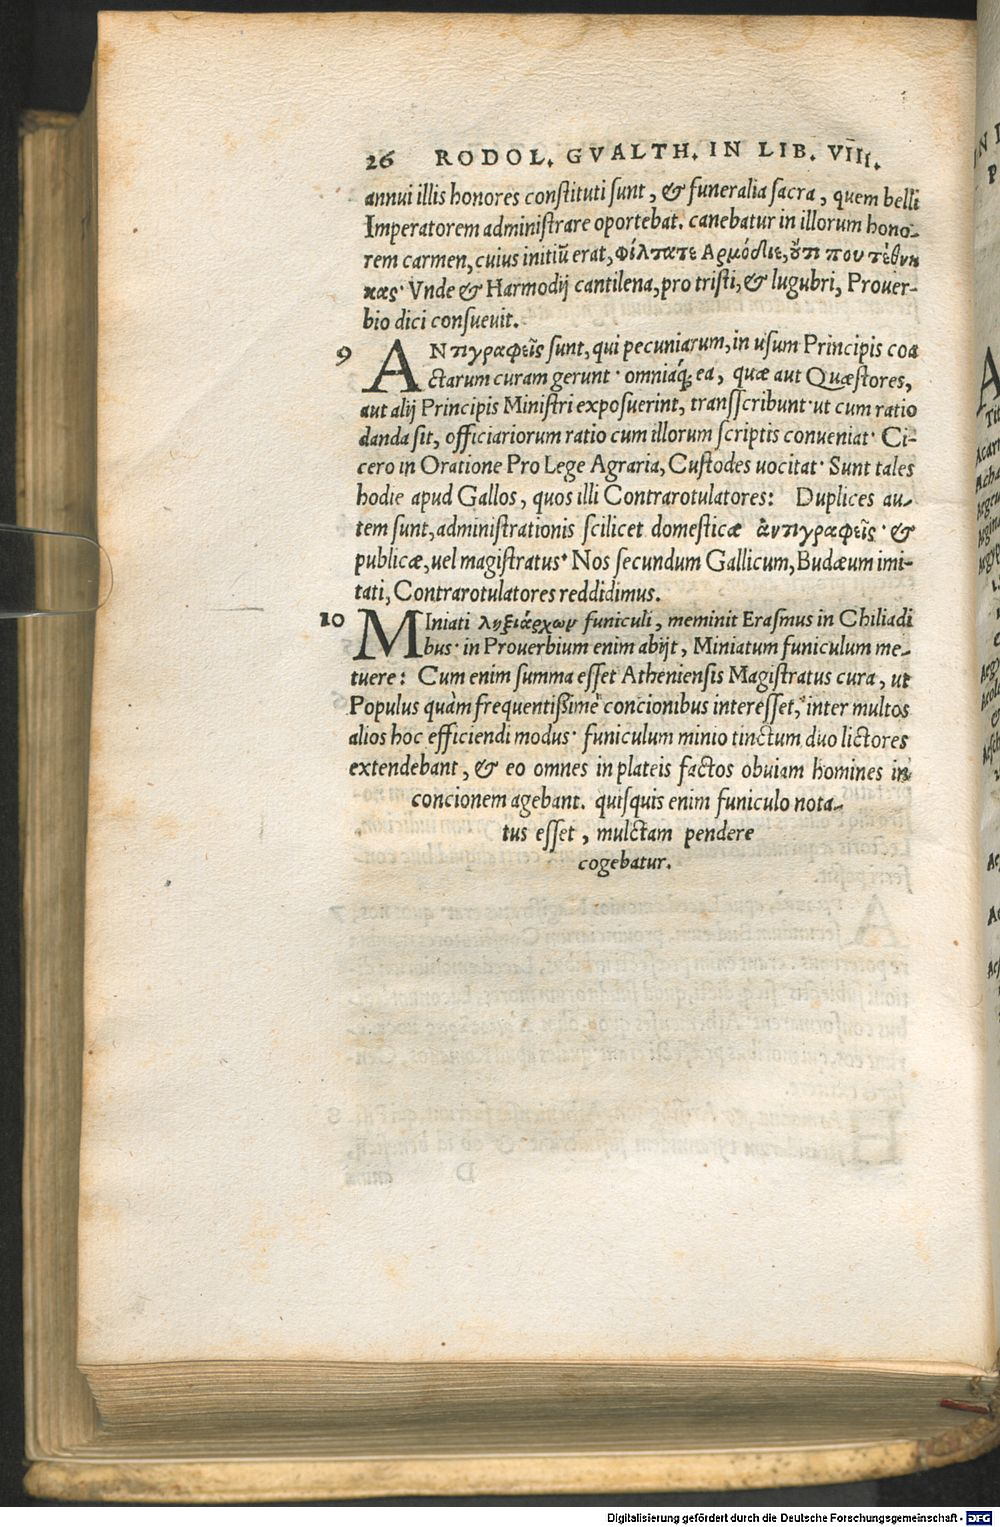 26 RODOL. GVALTH. IN LIB. VIII.
annui illis honores constituti sunt, & funeralia sacra, quem belli
Imperatorem administrare oportebat. canebatur in illorum hono-
rem carmen, cuius initiũ erat, φίλτατε Αρμόδιε, ὅτι που τέθνη
κας· Vnde & Harmodij cantilena, pro tristi, & lugubri, Prouer-
bio dici consueuit.
9 ΑΝτιγραφεῖς sunt, qui pecuniarum, in usum Principis coa
ctarum curam gerunt· omniaq́; ea, quæ aut Quæstores,
aut alij Principis Ministri exposuerint, transscribunt· ut cum ratio
danda sit, officiariorum ratio cum illorum scriptis conueniat· Ci-
cero in Oratione Pro Lege Agraria, Custodes uocitat· Sunt tales
hodie apud Gallos, quos illi Contrarotulatores: Duplices au-
tem sunt, administrationis scilicet domesticæ ἀντιγραφεῖς· &
publicæ, uel magistratus· Nos secundum Gallicum, Budæum imi-
tati, Contrarotulatores reddidimus.
10 MIniati ληξιάρχων funiculi, meminit Erasmus in Chiliadi
bus· in Prouerbium enim abijt, Miniatum funiculum me-
tuere: Cum enim summa esset Atheniensis Magistratus cura, ut
Populus quàm frequentissimè concionibus interesset, inter multos
alios hoc efficiendi modus· funiculum minio tinctum duo lictores
extendebant, & eo omnes in plateis factos obuiam homines in
concionem agebant. quisquis enim funiculo nota-
tus esset, mulctam pendere
cogebatur.
Digitalisierung gefördert durch die Deutsche Forschungsgemeinschaft - DFG